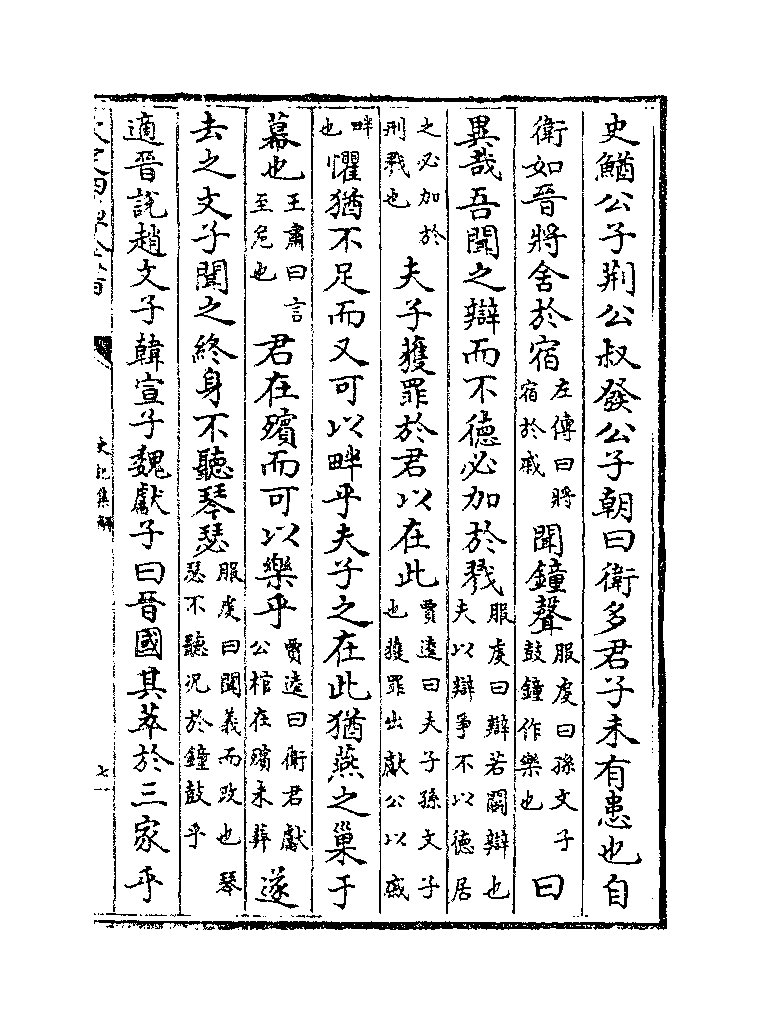 史鰌公子荆公叔發公子朝曰衛多君子未有患也自
衛如晉將舍於宿左傳曰將宿於戚聞鐘聲服虔曰孫文子鼓鐘作樂也曰
異哉吾聞之辯而不德必加於戮服虔曰辯若鬬辯也夫以辯爭不以德居
之必加於刑戮也夫子獲罪於君以在此賈逵曰夫子孫文子也獲罪出獻公以戚
畔也懼猶不足而又可以畔乎夫子之在此猶燕之巢于
幕也王肅曰言至危也君在殯而可以樂乎賈逵曰衛君獻公棺在殯未葬遂
去之文子聞之終身不聽琴瑟服虔曰聞義而改也琴瑟不聽况於鐘鼓乎
適晉説趙文子韓宣子魏獻子曰晉國其萃於三家乎
史記集解